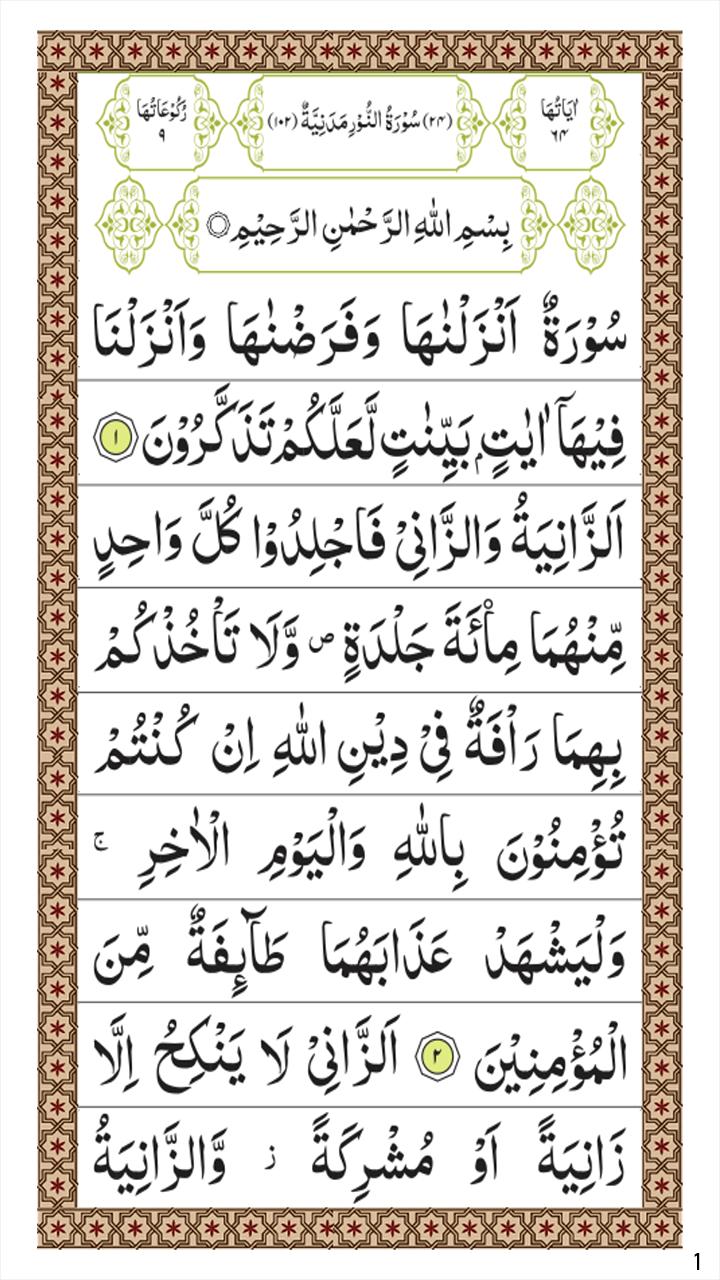 اٰيَاتُهَا ٦٤
(٢٤) سُوْرَةُ النُّوْرِ مَدَنِيَّةٌ (١٠٢)
رُكُوْعَاتُهَا ٩
بِسْمِ اللّٰهِ الرَّحْمٰنِ الرَّحِيْمِ
سُوْرَةٌ اَنْزَلْنٰهَا وَفَرَضْنٰهَا وَاَنْزَلْنَا
فِيْهَآ اٰيٰتٍۭ بَيِّنٰتٍ لَّعَلَّكُمْ تَذَكَّرُوْنَ ١
اَلزَّانِيَةُ وَالزَّانِيْ فَاجْلِدُوْا كُلَّ وَاحِدٍ
مِّنْهُمَا مِائَةَ جَلْدَةٍ ص وَّلَا تَاْخُذْكُمْ
بِهِمَا رَاْفَةٌ فِيْ دِيْنِ اللّٰهِ اِنْ كُنْتُمْ
تُؤْمِنُوْنَ بِاللّٰهِ وَالْيَوْمِ الْاٰخِرِ ج
وَلْيَشْهَدْ عَذَابَهُمَا طَآئِفَةٌ مِّنَ
الْمُؤْمِنِيْنَ ٢ اَلزَّانِيْ لَا يَنْكِحُ اِلَّا
زَانِيَةً اَوْ مُشْرِكَةً ز وَّالزَّانِيَةُ
1